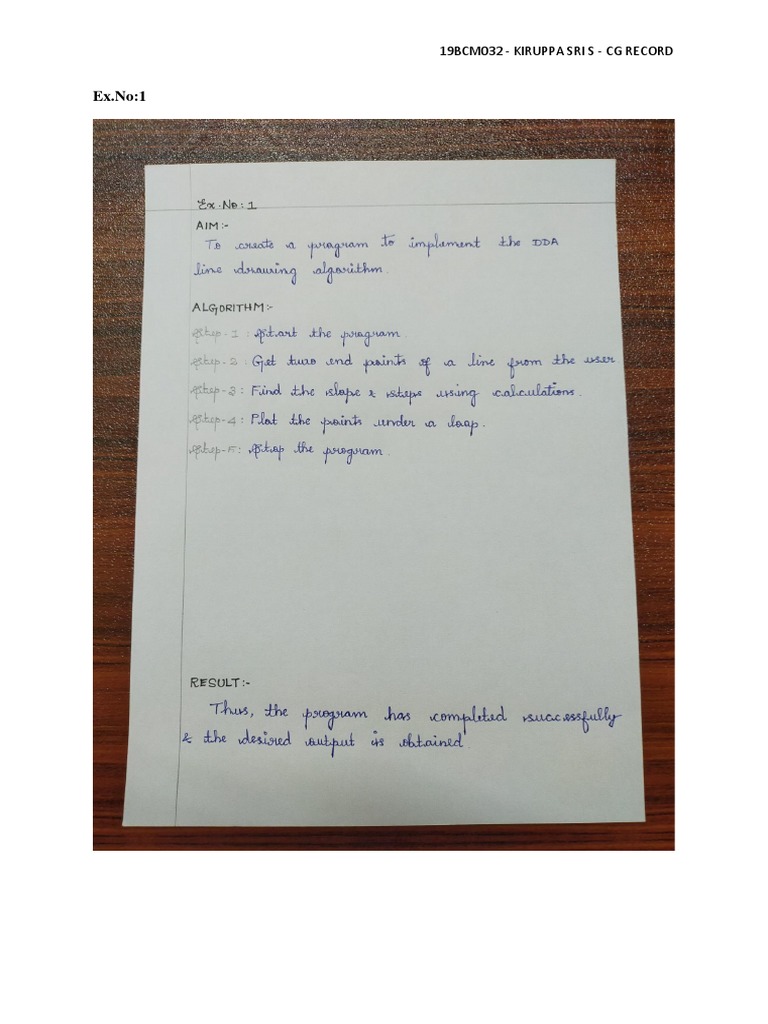 19BCM032 - KIRUPPA SRI S - CG RECORD
Ex.No:1
Ex.No: 1
AIM:-
To create a program to implement the DDA
line drawing algorithm.
ALGORITHM:-
Step-1: Start the program.
Step-2: Get two end points of a line from the user
Step-3: Find the slope & steps using calculations.
Step-4: Plot the points under a loop.
Step-5: Stop the program.
RESULT:-
Thus, the program has completed successfully
& the desired output is obtained